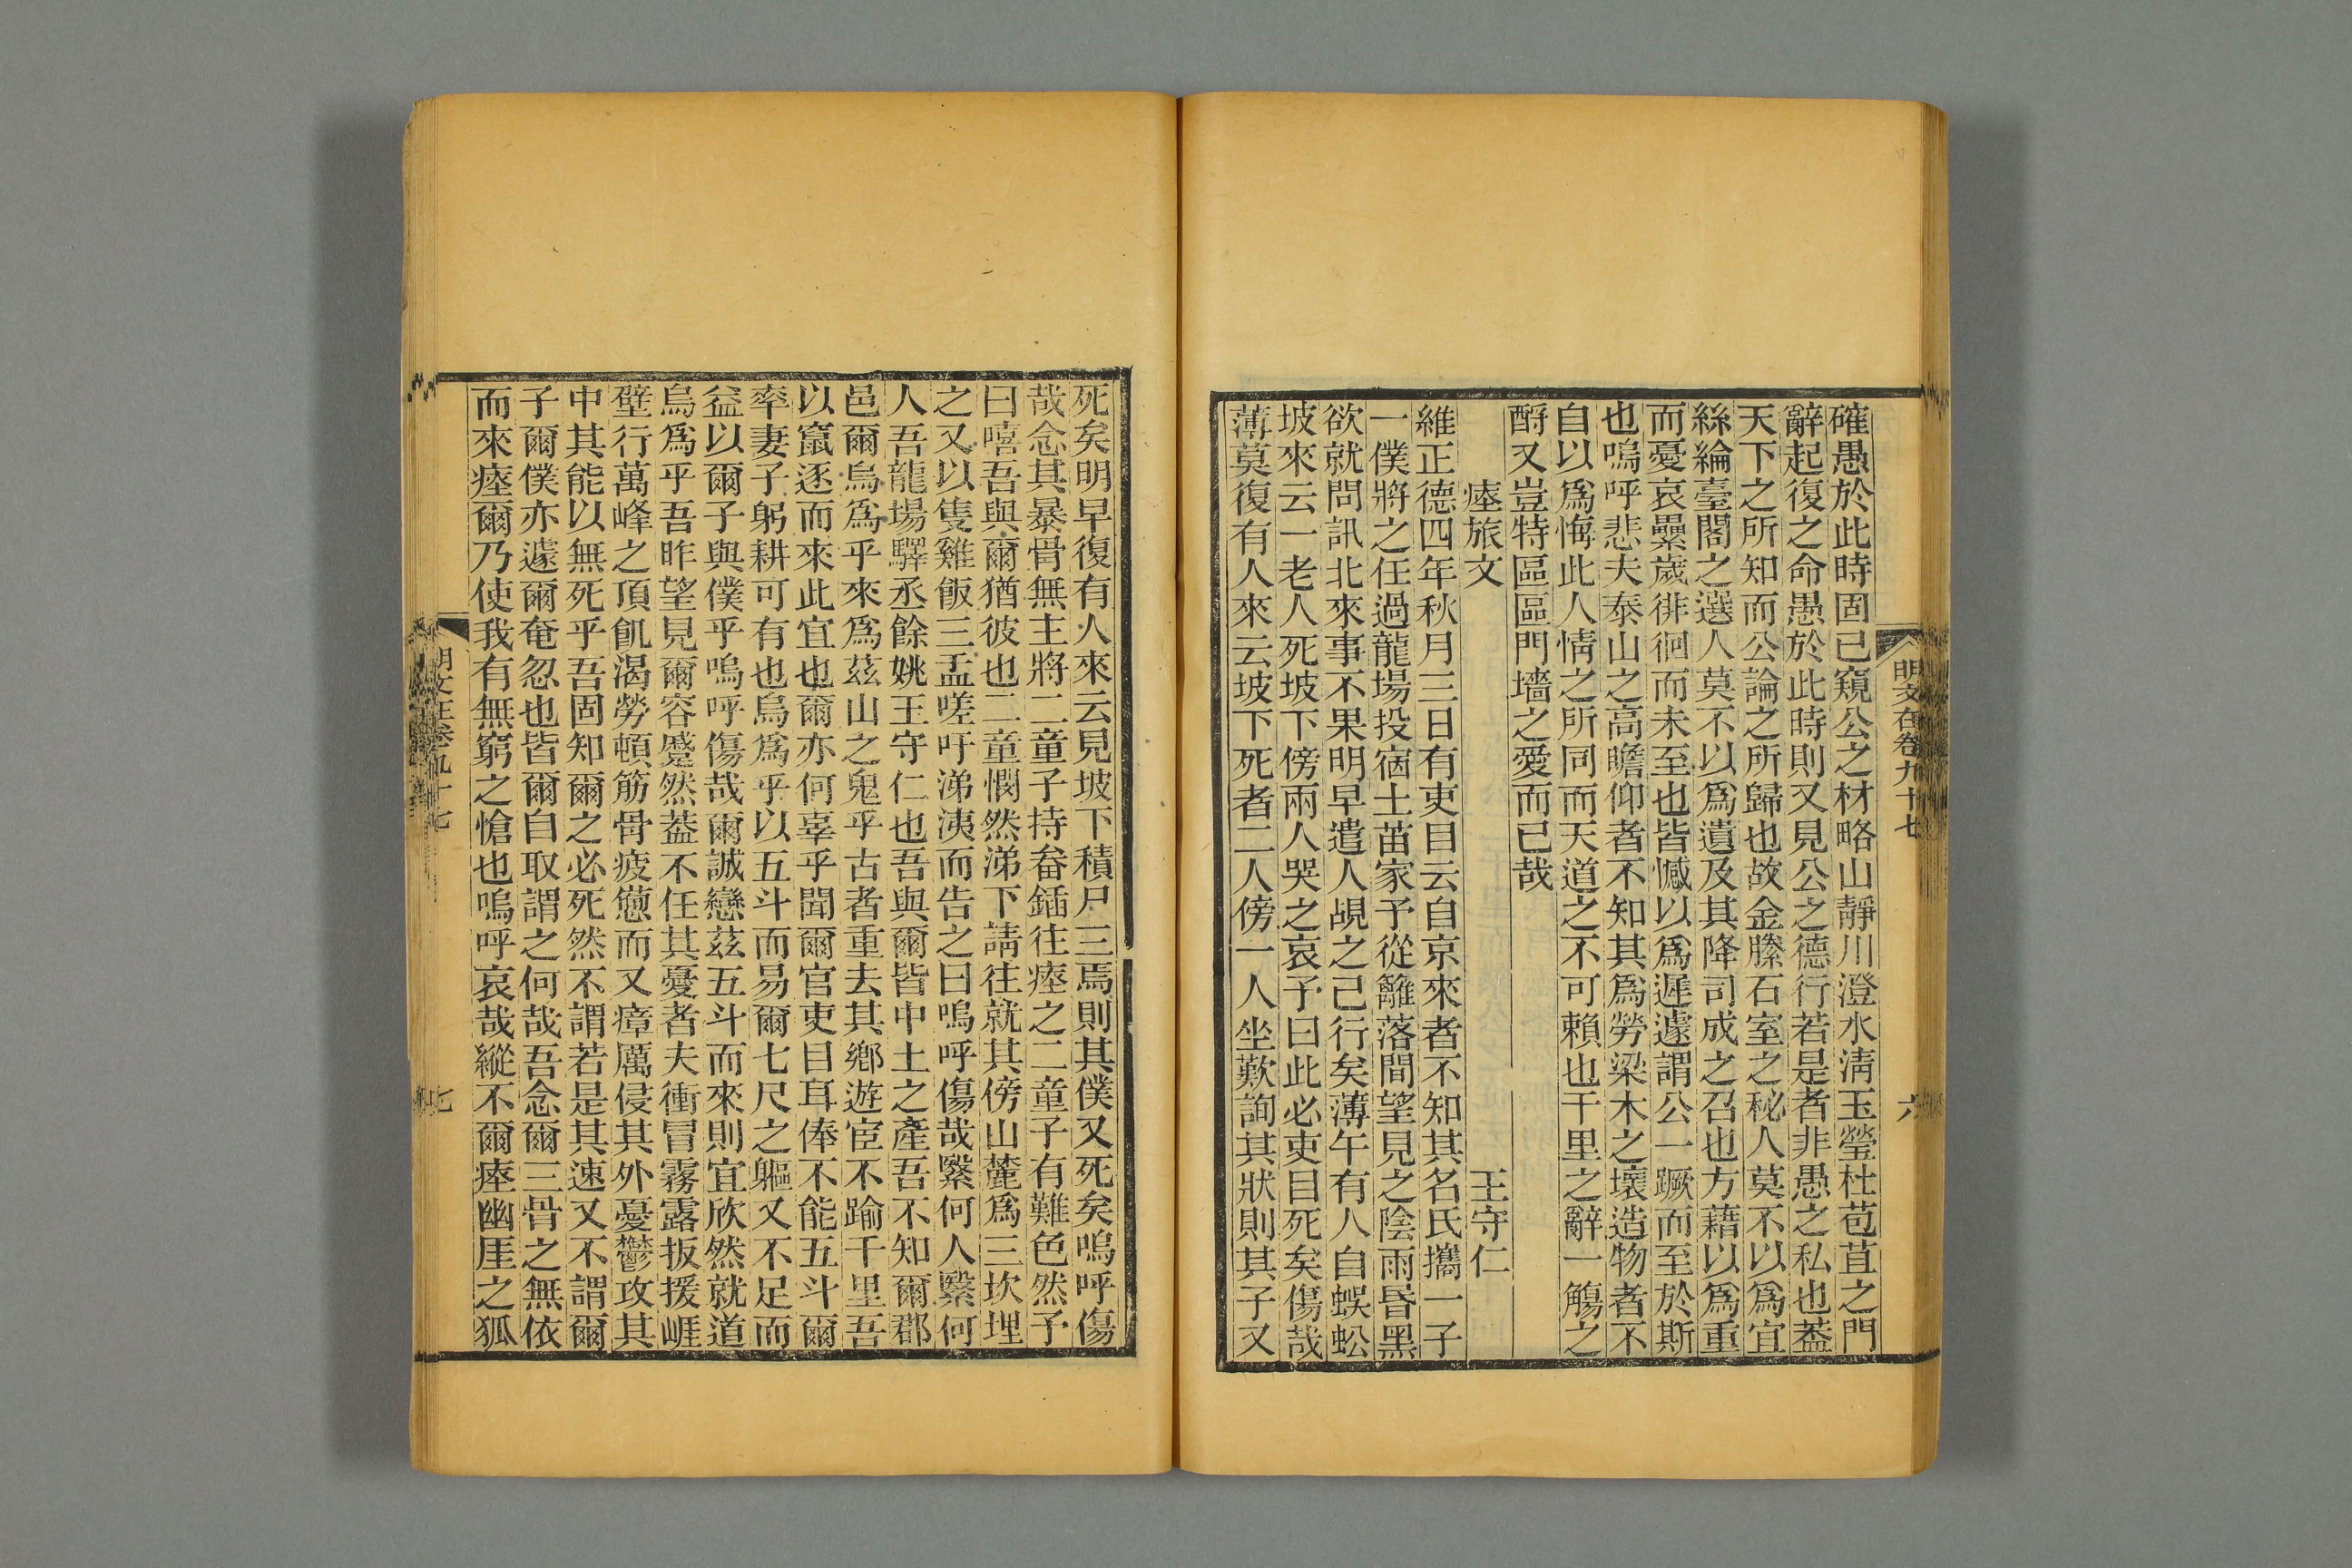 明文在卷九十七
六
確愚於此時固已窺公之材略山靜川澄水淸玉瑩杜苞苴之門
辭起復之命愚於此時則又見公之德行若是者非愚之私也葢
天下之所知而公論之所歸也故金縢石室之秘人莫不以爲宜
絲綸臺閣之選人莫不以爲遺及其降司成之召也方藉以爲重
而憂哀纍歲徘徊而未至也皆憾以爲遲遽謂公一蹶而至於斯
也嗚呼悲夫泰山之高瞻仰者不知其爲勞梁木之壞造物者不
自以爲悔此人情之所同而天道之不可賴也千里之辭一觴之
酹又豈特區區門墻之愛而已哉
瘞旅文　王守仁
維正德四年秋月三日有吏目云自京來者不知其名氏攜一子
一僕將之任過龍場投宿土苗家予從籬落間望見之陰雨昏黑
欲就問訊北來事不果明早遣人覘之已行矣薄午有人自蜈蚣
坡來云一老人死坡下傍兩人哭之哀予曰此必吏目死矣傷哉
薄莫復有人來云坡下死者二人傍一人坐歎詢其狀則其子又
死矣明早復有人來云見坡下積尸三焉則其僕又死矣嗚呼傷
哉念其暴骨無主將二童子持畚鍤往瘞之二童子有難色然予
曰嘻吾與爾猶彼也二童憫然涕下請往就其傍山麓爲三坎埋
之又以隻雞飯三盂嗟吁涕洟而告之曰嗚呼傷哉繄何人繄何
人吾龍場驛丞餘姚王守仁也吾與爾皆中土之產吾不知爾郡
邑爾烏爲乎來爲茲山之鬼乎古者重去其鄉遊宦不踰千里吾
以竄逐而來此宜也爾亦何辜乎聞爾官吏目耳俸不能五斗爾
率妻子躬耕可有也烏爲乎以五斗而易爾七尺之軀又不足而
益以爾子與僕乎嗚呼傷哉爾誠戀茲五斗而來則宜欣然就道
烏爲乎吾昨望見爾容蹙然葢不任其憂者夫衝冒霧露扳援崕
壁行萬峰之頂飢渴勞頓筋骨疲憊而又瘴厲侵其外憂鬱攻其
中其能以無死乎吾固知爾之必死然不謂若是其速又不謂爾
子爾僕亦遽爾奄忽也皆爾自取謂之何哉吾念爾三骨之無依
而來瘞爾乃使我有無窮之愴也嗚呼哀哉縱不爾瘞幽厓之狐
明文在卷九十七
七